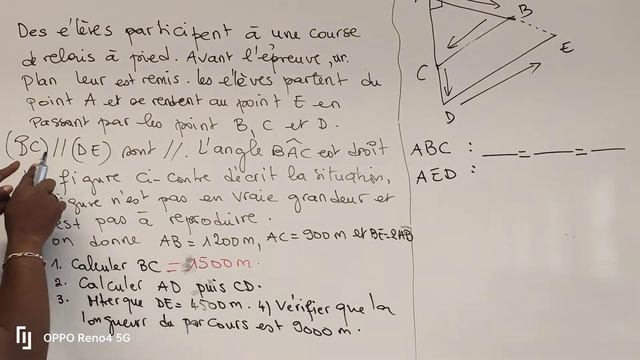 Des élèves participent à une course
de relais à pied. Avant l'épreuve, un
plan leur est remis. les élèves partent du
point A et se rendent au point E en
passant par les point B, C et D.
(BC) // (DE) sont //. L'angle BÂC est droit
figure ci-contre décrit la situation,
figure n'est pas en vraie grandeur et
est pas à reproduire.
on donne AB = 1200m, AC = 900m et BE=2AB
1. Calculer BC = 1500m.
2. Calculer AD puis CD.
3. Mter que DE = 4500m. 4) Vérifier que la
longueur du parcours est 9000m.
B
E
C
D
ABC : __ = __ = __
AED :
OPPO Reno4 5G